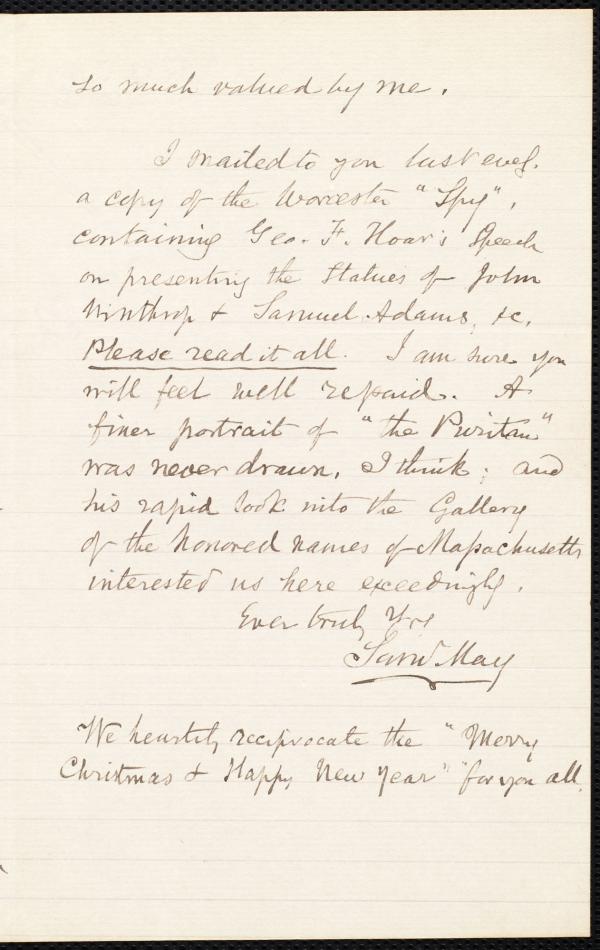 so much valued by me.
I mailed to you last eveg.
a copy of the Worcester "Spy",
containing Geo. F. Hoar's Speech
on presenting the Statues of John
Winthrop & Samuel Adams, &c.
Please read it all. I am sure you
will feel well repaid. A
finer portrait of "the Puritan"
was never drawn, I think; and
his rapid look into the Gallery
of the honored names of Massachusetts
interested us here exceedingly.
Ever truly Yrs
Saml May
We heartily reciprocate the "Merry
Christmas & Happy New Year" for you all.